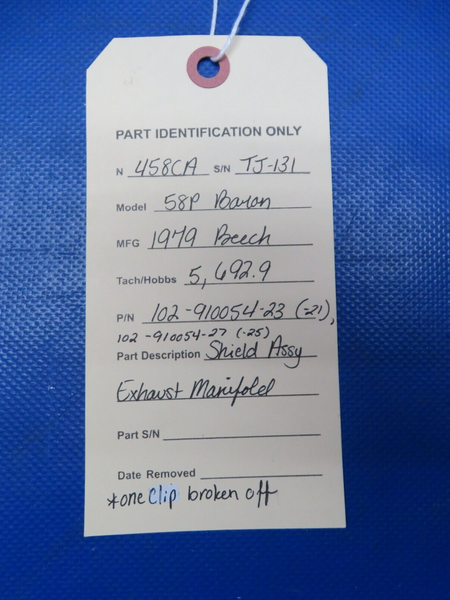 PART IDENTIFICATION ONLY
N 458CA S/N TJ-131
Model 58P Baron
MFG 1979 Beech
Tach/Hobbs 5,692.9
P/N 102-910054-23 (-21),
102-910054-27 (-25)
Part Description Shield Assy
Exhaust Manifold
Part S/N
Date Removed
*one clip broken off